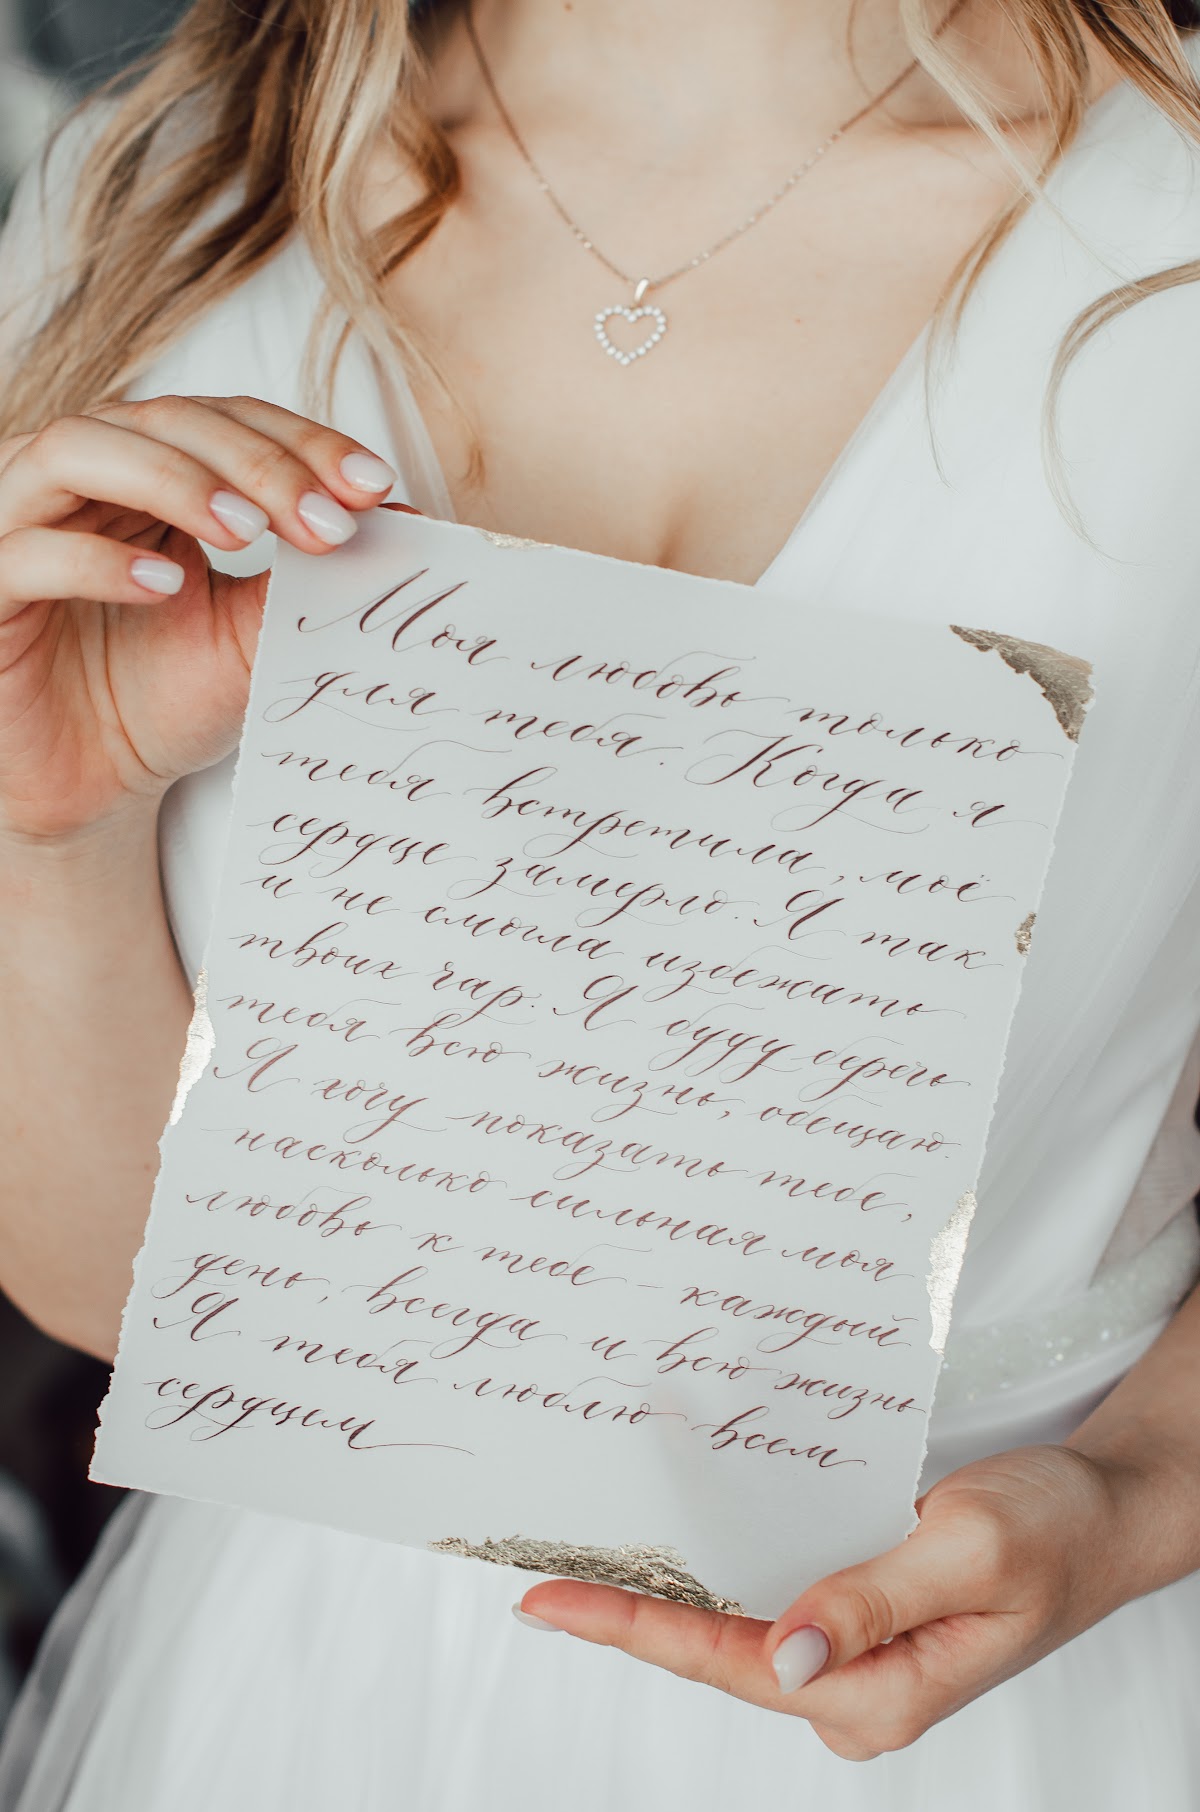 Моя любовь только
для тебя. Когда я
тебя встретила, моё
сердце замерло. Я так
и не смогла избежать
твоих чар. Я буду беречь
тебя всю жизнь, обещаю.
Я хочу показать тебе,
насколько сильная моя
любовь к тебе - каждый
день, всегда и всю жизнь
Я тебя люблю всем
сердцем